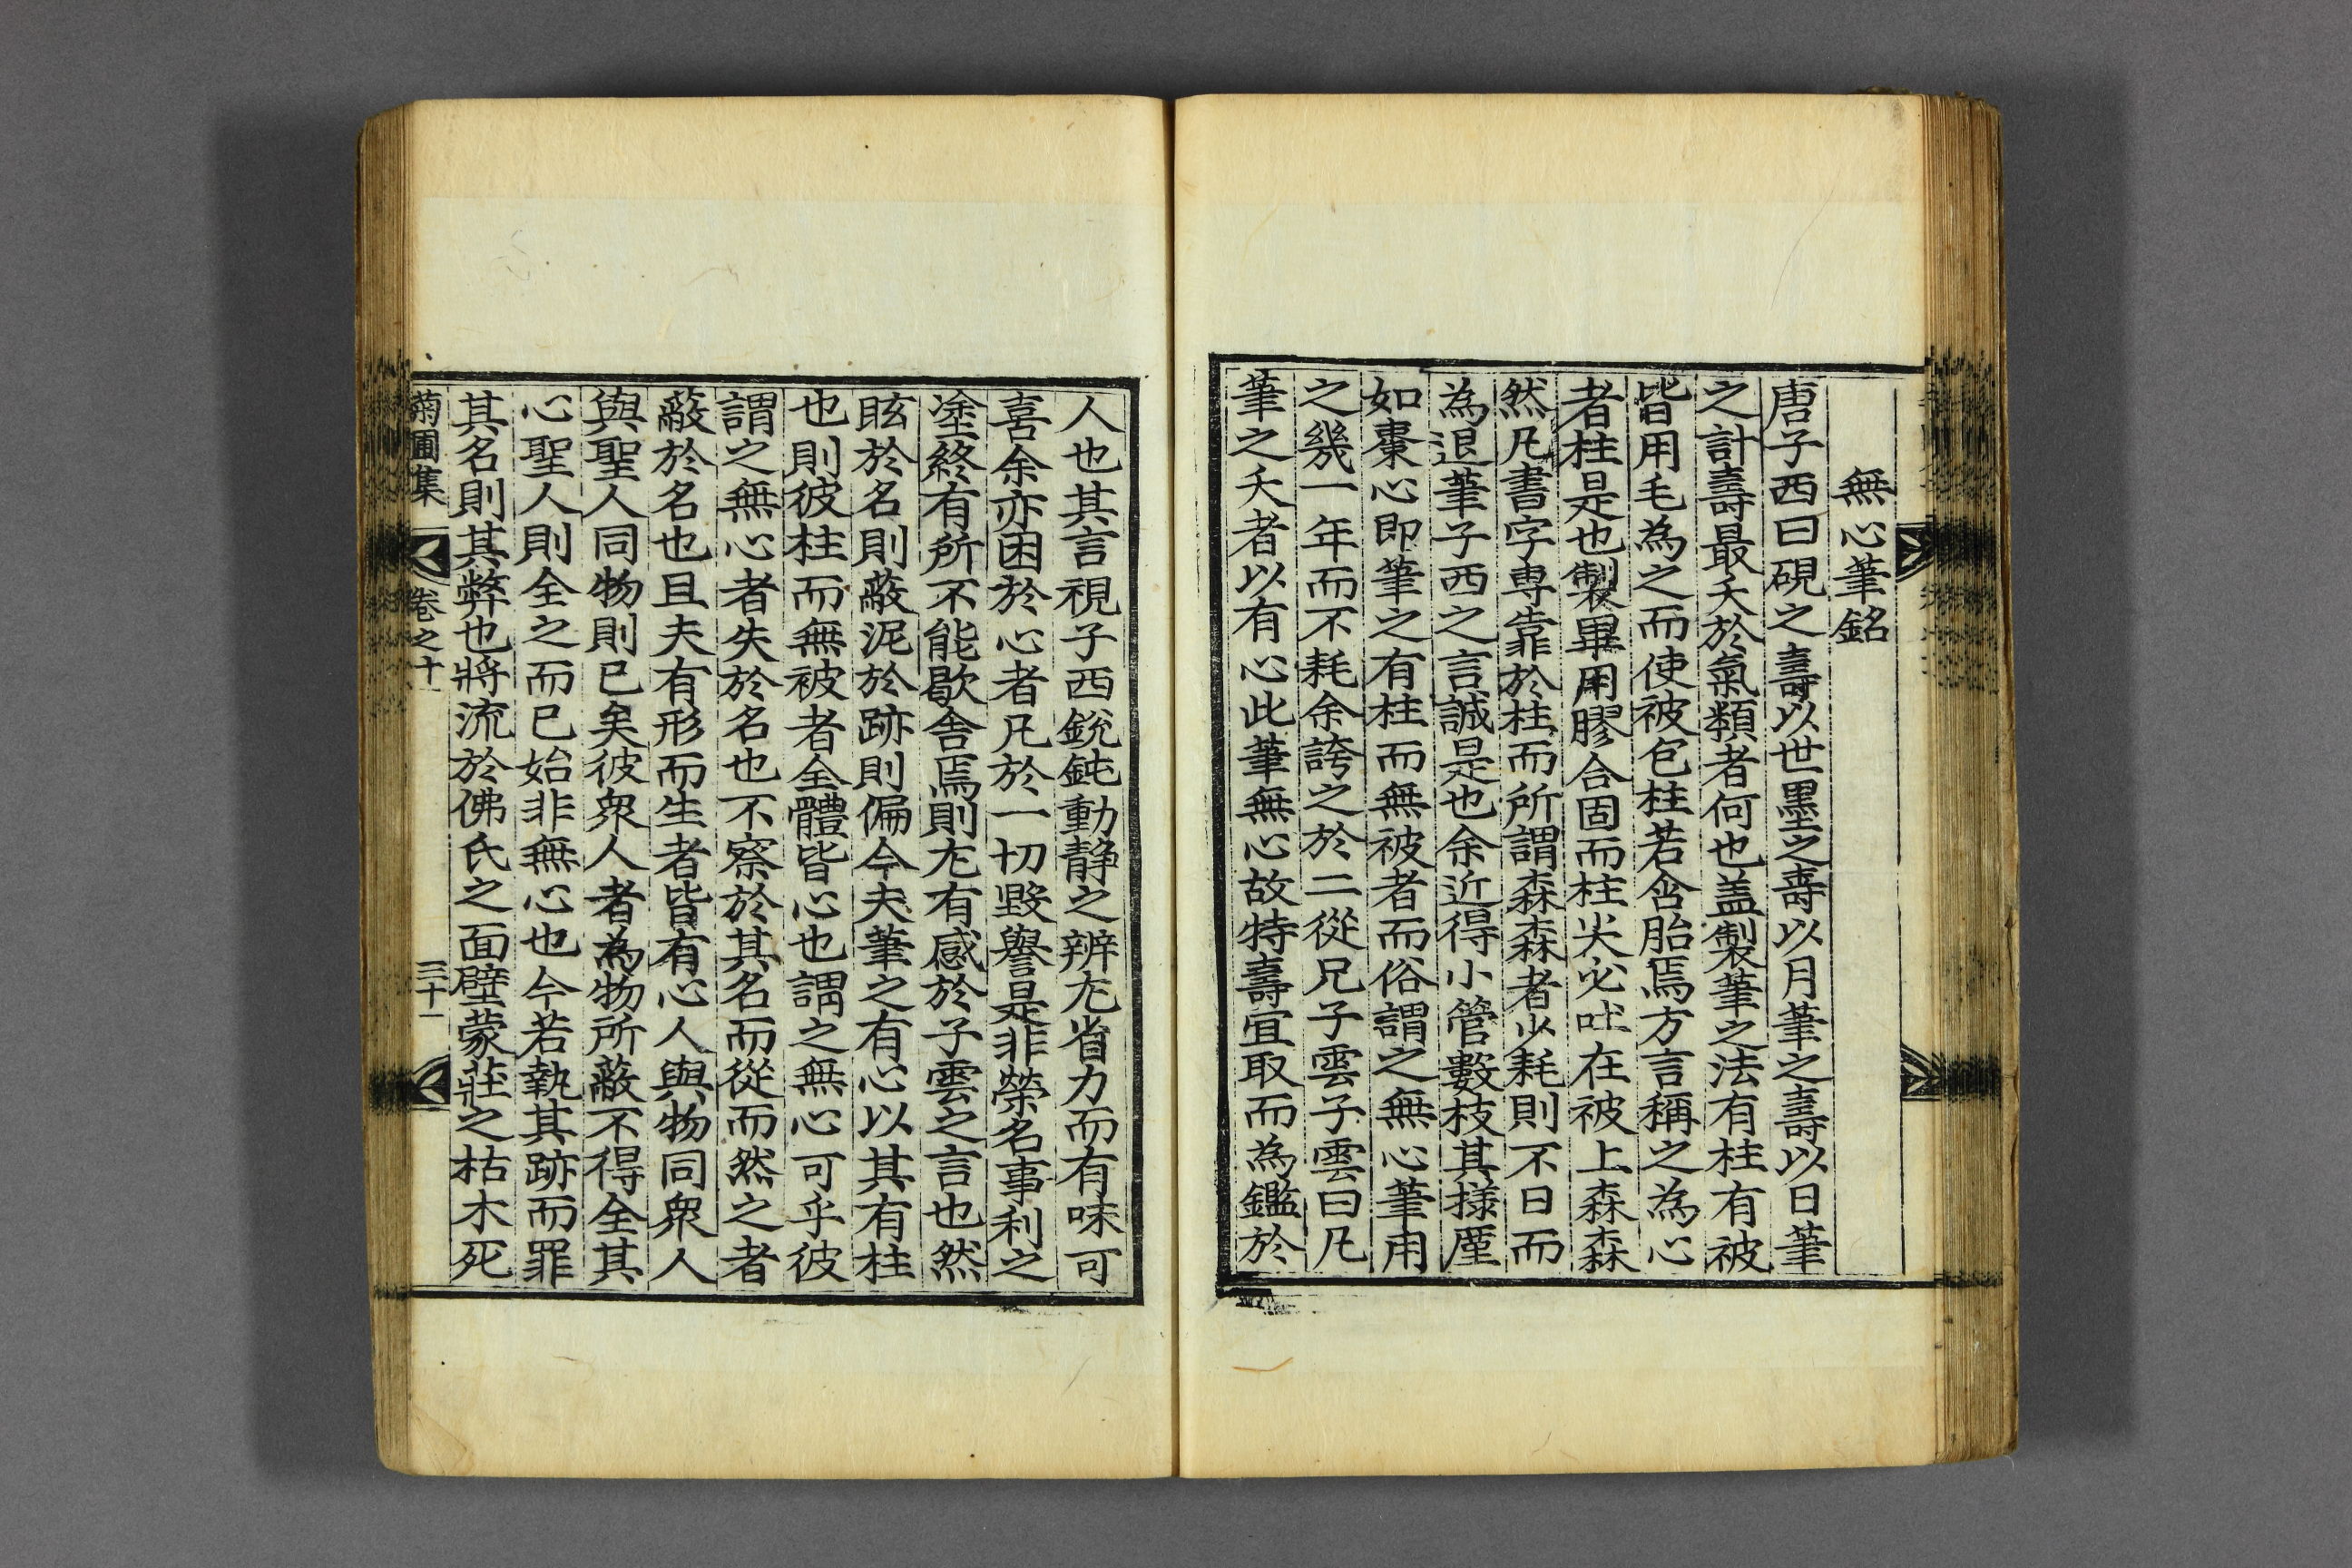 無心筆銘
唐子西曰硯之壽以世墨之壽以月筆之壽以日筆
之計壽最夭於氣類者何也盖製筆之法有柱有被
皆用毛為之而使被包柱若含胎焉方言稱之為心
者柱是也製畢用膠合固而柱尖必吐在被上森森
然凡書字専靠於柱而所謂森森者少耗則不日而
為退筆子西之言誠是也余近得小管數枝其㨾厪
如棗心即筆之有柱而無被者而俗謂之無心筆用
之幾一年而不耗余誇之於二從兄子雲子雲曰凡
筆之夭者以有心此筆無心故特壽宜取而為鑑於
人也其言視子西銳鈍動静之辨尤省力而有味可
喜余亦困於心者凡於一切毀譽是非榮名事利之
塗終有所不能歇舍焉則尤有感於子雲之言也然
眩於名則蔽泥於跡則偏今夫筆之有心以其有柱
也則彼柱而無被者全體皆心也謂之無心可乎彼
謂之無心者失於名也不察於其名而從而然之者
蔽於名也且夫有形而生者皆有心人與物同衆人
與聖人同物則已矣彼衆人者為物所蔽不得全其
心聖人則全之而已始非無心也今若執其跡而罪
其名則其弊也將流於佛氏之面壁蒙莊之枯木死
菊圃集 卷之十一 三十一